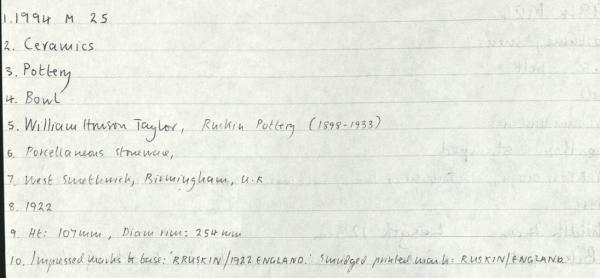 1. 1994 M 25
2. Ceramics
3. Pottery
4. Bowl
5. William Howson Taylor, Ruskin Pottery (1898-1933)
6. Porcellaneous stoneware,
7. West Smethwick, Birmingham, U.K
8. 1922
9. Ht: 107mm, Diam rim: 254mm
10. Impressed marks to base: 'RRUSKIN/1922 ENGLAND.' Smudged printed mark: RUSKIN/ENGLAND